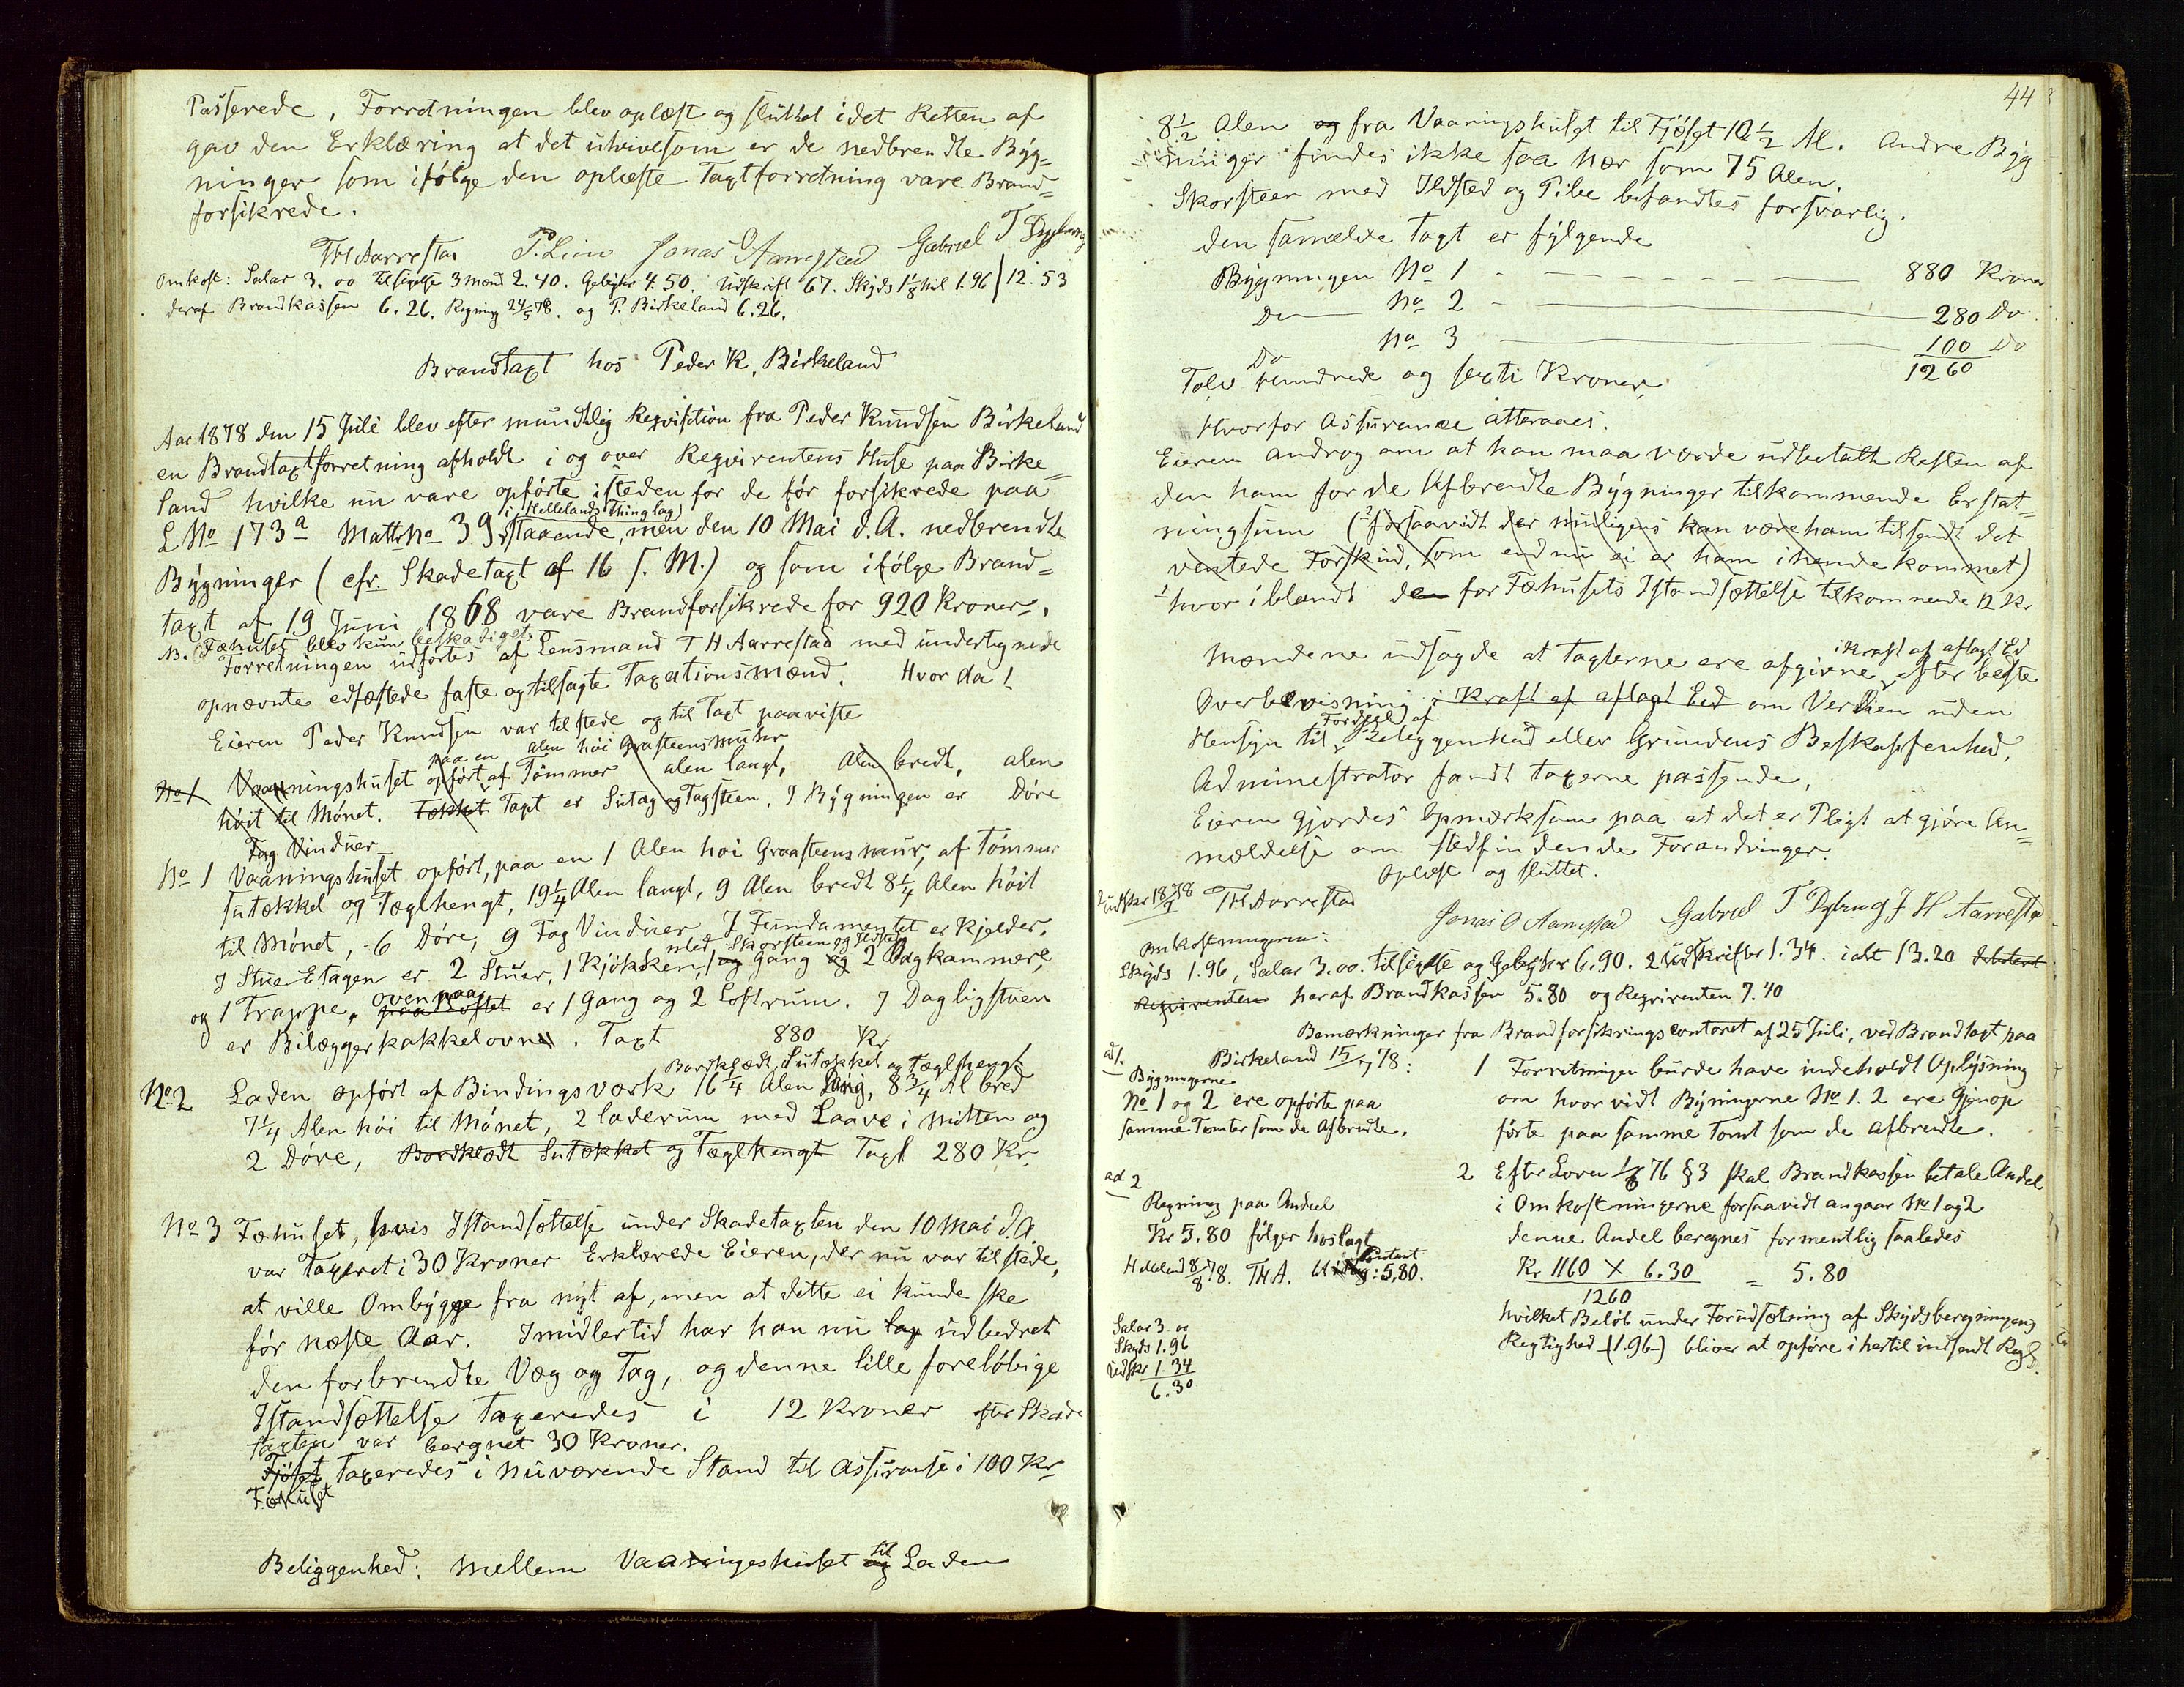 Passerede. Forretningen blev oplæst og sluttet idet Retten af
gav den Erklæring at det utvivelsom er de nedbrendte Byg=
ninger som ifølge den oplæste Taxtforretning vare Brand=
forsikrede.
TH Aarrestad P. Lim Jonas O Aarrestad Gabriel T Dybing
Omkost: Salar 3.00 Tilsigelse 3 mænd 2.40. Gebyhr 4.50. Udskrift 67. Skyds 1 1/8 Mil 1.96 | 12.53
deraf Brandkassen 6.26. Regning 24/5 78. og P. Birkeland 6.26.
Brandtaxt hos Peder K. Birkeland
Aar 1878 den 15 Juli blev efter mundtlig Reqvisition fra Peder Knudsen Birkeland
en Brandtaxtforretning afholdt i og over Reqvirentens Huse paa Birke=
land hvilke nu vare opførte isteden for de før forsikrede paa
i Hellelands Thinglag
L No 173a Matr No 39 staaende, men den 10 Mai d.A. nedbrendte
Bygninger (cfr. Skadetaxt af 16 s. M.) og som ifølge Brand=
taxt af 19 Juni 1868 vare Brandforsikrede for 920 Kroner,
NB. Fæhuset blev kun beskadiget.
Forretningen udførtes af Lensmand T H Aarrestad med undertegnede
opnævnte edfæstede faste og tilsagte Taxationsmænd. Hvor da!
Eieren Peder Knudsen var tilstede og til Taxt paaviste
paa en alen høi Graasteensmuhr
No 1 Vaaningshuset opført af Tømmer alen langt, Alen bredt, alen
høit til Mønet. Tækket Taxt er Sutag og Tagsteen. I Bygningen er Døre
Fag Vinduer
No 1 Vaaningshuset opført, paa en 1 Alen høi Graasteensmur, af Tømmer
sutækket og Tæglhengt, 19 1/4 Alen langt, 9 Alen bredt 8 1/4 Alen høit
til Mønet, 6 Døre, 9 Fag Vinduer I Fundamentet er Kjelder,
med Skorsteen og Ildsted
I Stue Etagen er 2 Stuer, 1 Kjøkken, 1 og Gang og 2 Bagkammere,
og 1 Trappe. ovenpaa paa Loftet er 1 Gang og 2 Loftrum. I Dagligstuen
er Bilæggerkakkelovn. Taxt 880 Kr
Bordklædt, Sutækket og Tæglhengt
No 2 Laden opført af Bindingsværk 16 1/4 Alen lang, 8 3/4 Al bred
7 1/4 Alen høi til Mønet, 2 laderum med Laave i midten og
2 Døre, Bordklædt Sutækket og Tæglhengt Taxt 280 Kr
No 3 Fæhuset, hvis Istandsættelse under Skadetaxten den 10 Mai d.A.
var Taxeret i 30 Kroner Erklærede Eieren, der nu var tilstede,
at ville Ombygge fra nyt af, men at dette ei kunde ske
før næste Aar. Imidlertid har han nu lap udbedret
den forbrendte Væg og Tag, og denne lille foreløbige
Istandsættelse Taxeredes i 12 Kroner efter Skade
taxten var beregnet 30 Kroner.
Fjøset Taxeredes i nuværende Stand til Assuranse i 100 Kr
Fæhuset
Beliggenhed: mellem Vaaningeshuset og til Laden
44
8 1/2 Alen og fra Vaaningshuset til Fjøset 10 1/2 Al. Andre Byg
ninger findes ikke saa nær som 75 Alen.
Skorsteen med Ildsted og Pibe befandtes forsvarlig.
den samælde Taxt er følgende
Bygningen No 1 880 Kroner
Do No 2 280 Do
Do No 3 100 Do
1260
Tolv Hundrede og sexti Kroner
Hvorfor Assurance atteraaes.
Eieren androg om at han maa vorde udbetalt Resten af
den ham for de Afbrendte Bygninger tilkommende Erstat=
ningsum (forsaavidt der muligens kan være ham tilsendt det
ventede Forskud, som endnu ei er ham ihende kommet)
hvoriblandt den for Fæhusets Istandsættelse tilkommende 12 Kr
Mændene udsagde at Taxterne ere afgivne i Kraft af aflagt Ed efter bedste
Overbevisning i Kraft af aflagt Eed om Verdien uden
Hensyn til Fordeel af Beliggenhed eller Grundens Beskaffenhed.
Administrator fandt taxerne passende.
Eieren gjordes Opmærksom paa at det er Pligt at gjøre An=
mældelse om stedfindende Forandringer.
Oplæst og sluttet.
2 udskr 18/7 78 TH. Aarrestad Jonas O Aarrestad Gabriel T Dybing J H Aarrestad
Omkostningerne:
Skyds 1.96, Salar 3.00. tilsigelse og Gebyhr 6.90. 2 udskrifter 1.34. i alt 13.20 debiteret
Reqvirenten heraf Brandkassen 5.80 og Reqvirenten 7.40
Bemærkninger fra Brandforsikringscontoret af 25 Juli, ved Brandtaxt paa
Birkeland 15/7 78:
ad 1.
Bygningerne
No 1 og 2 ere opførte paa
samme Tomter som de Afbrudte.
1 Forretningen burde have indeholdt Oplysning
om hvorvidt Bygningerne No 1. 2 ere Gjenop
førte paa samme Tomt som de afbrendte.
ad 2
Regning paa Andeel
Kr 5.80 følger hoslagt
Helleland 8/8 78. TH A. Contant: 5,80.
2 Efter Loven 1/6 76 § 3 skal Brandkassen betale Andel
i Omkostningerne forsaavidt angaar No 1 og 2
denne Andel beregnes formentlig saaledes
Kr 1160 X 6.30 = 5.80
1260
hvilket Beløb under Forudsætning af Skydsberegningens
Rigtighed (1.96) bliver at opføre i hertil indsendt Regg.
Salar 3.00
Skyds 1.96
Udskr 1.34
6.30